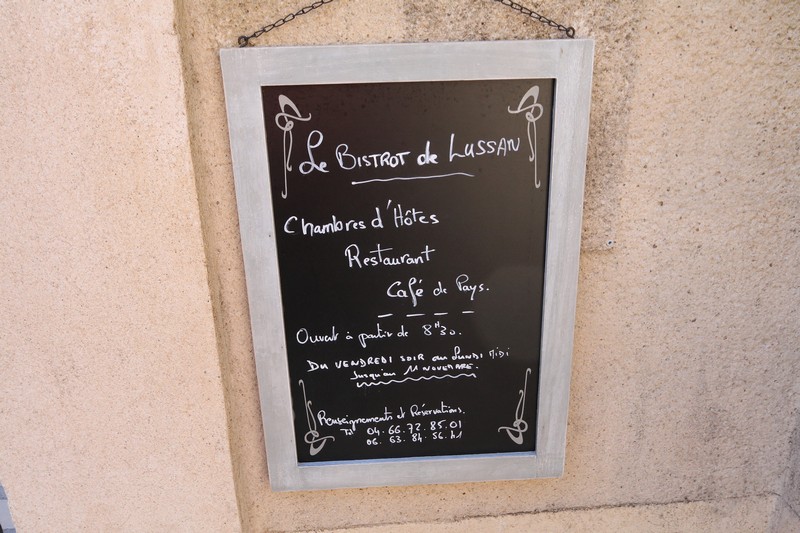 Le BISTROT de LUSSAN
Chambres d'Hôtes
Restaurant
Café de Pays.
Ouvert à partir de 8H30.
DU VENDREDI SOIR au Lundi MIDI
Jusqu'au 11 NOVEMBRE.
Renseignements et Réservations.
Tél 04.66.72.85.01
06.63.84.56.41